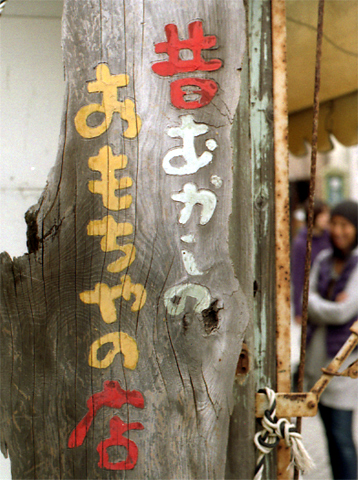 昔むかしの
おもちゃの店